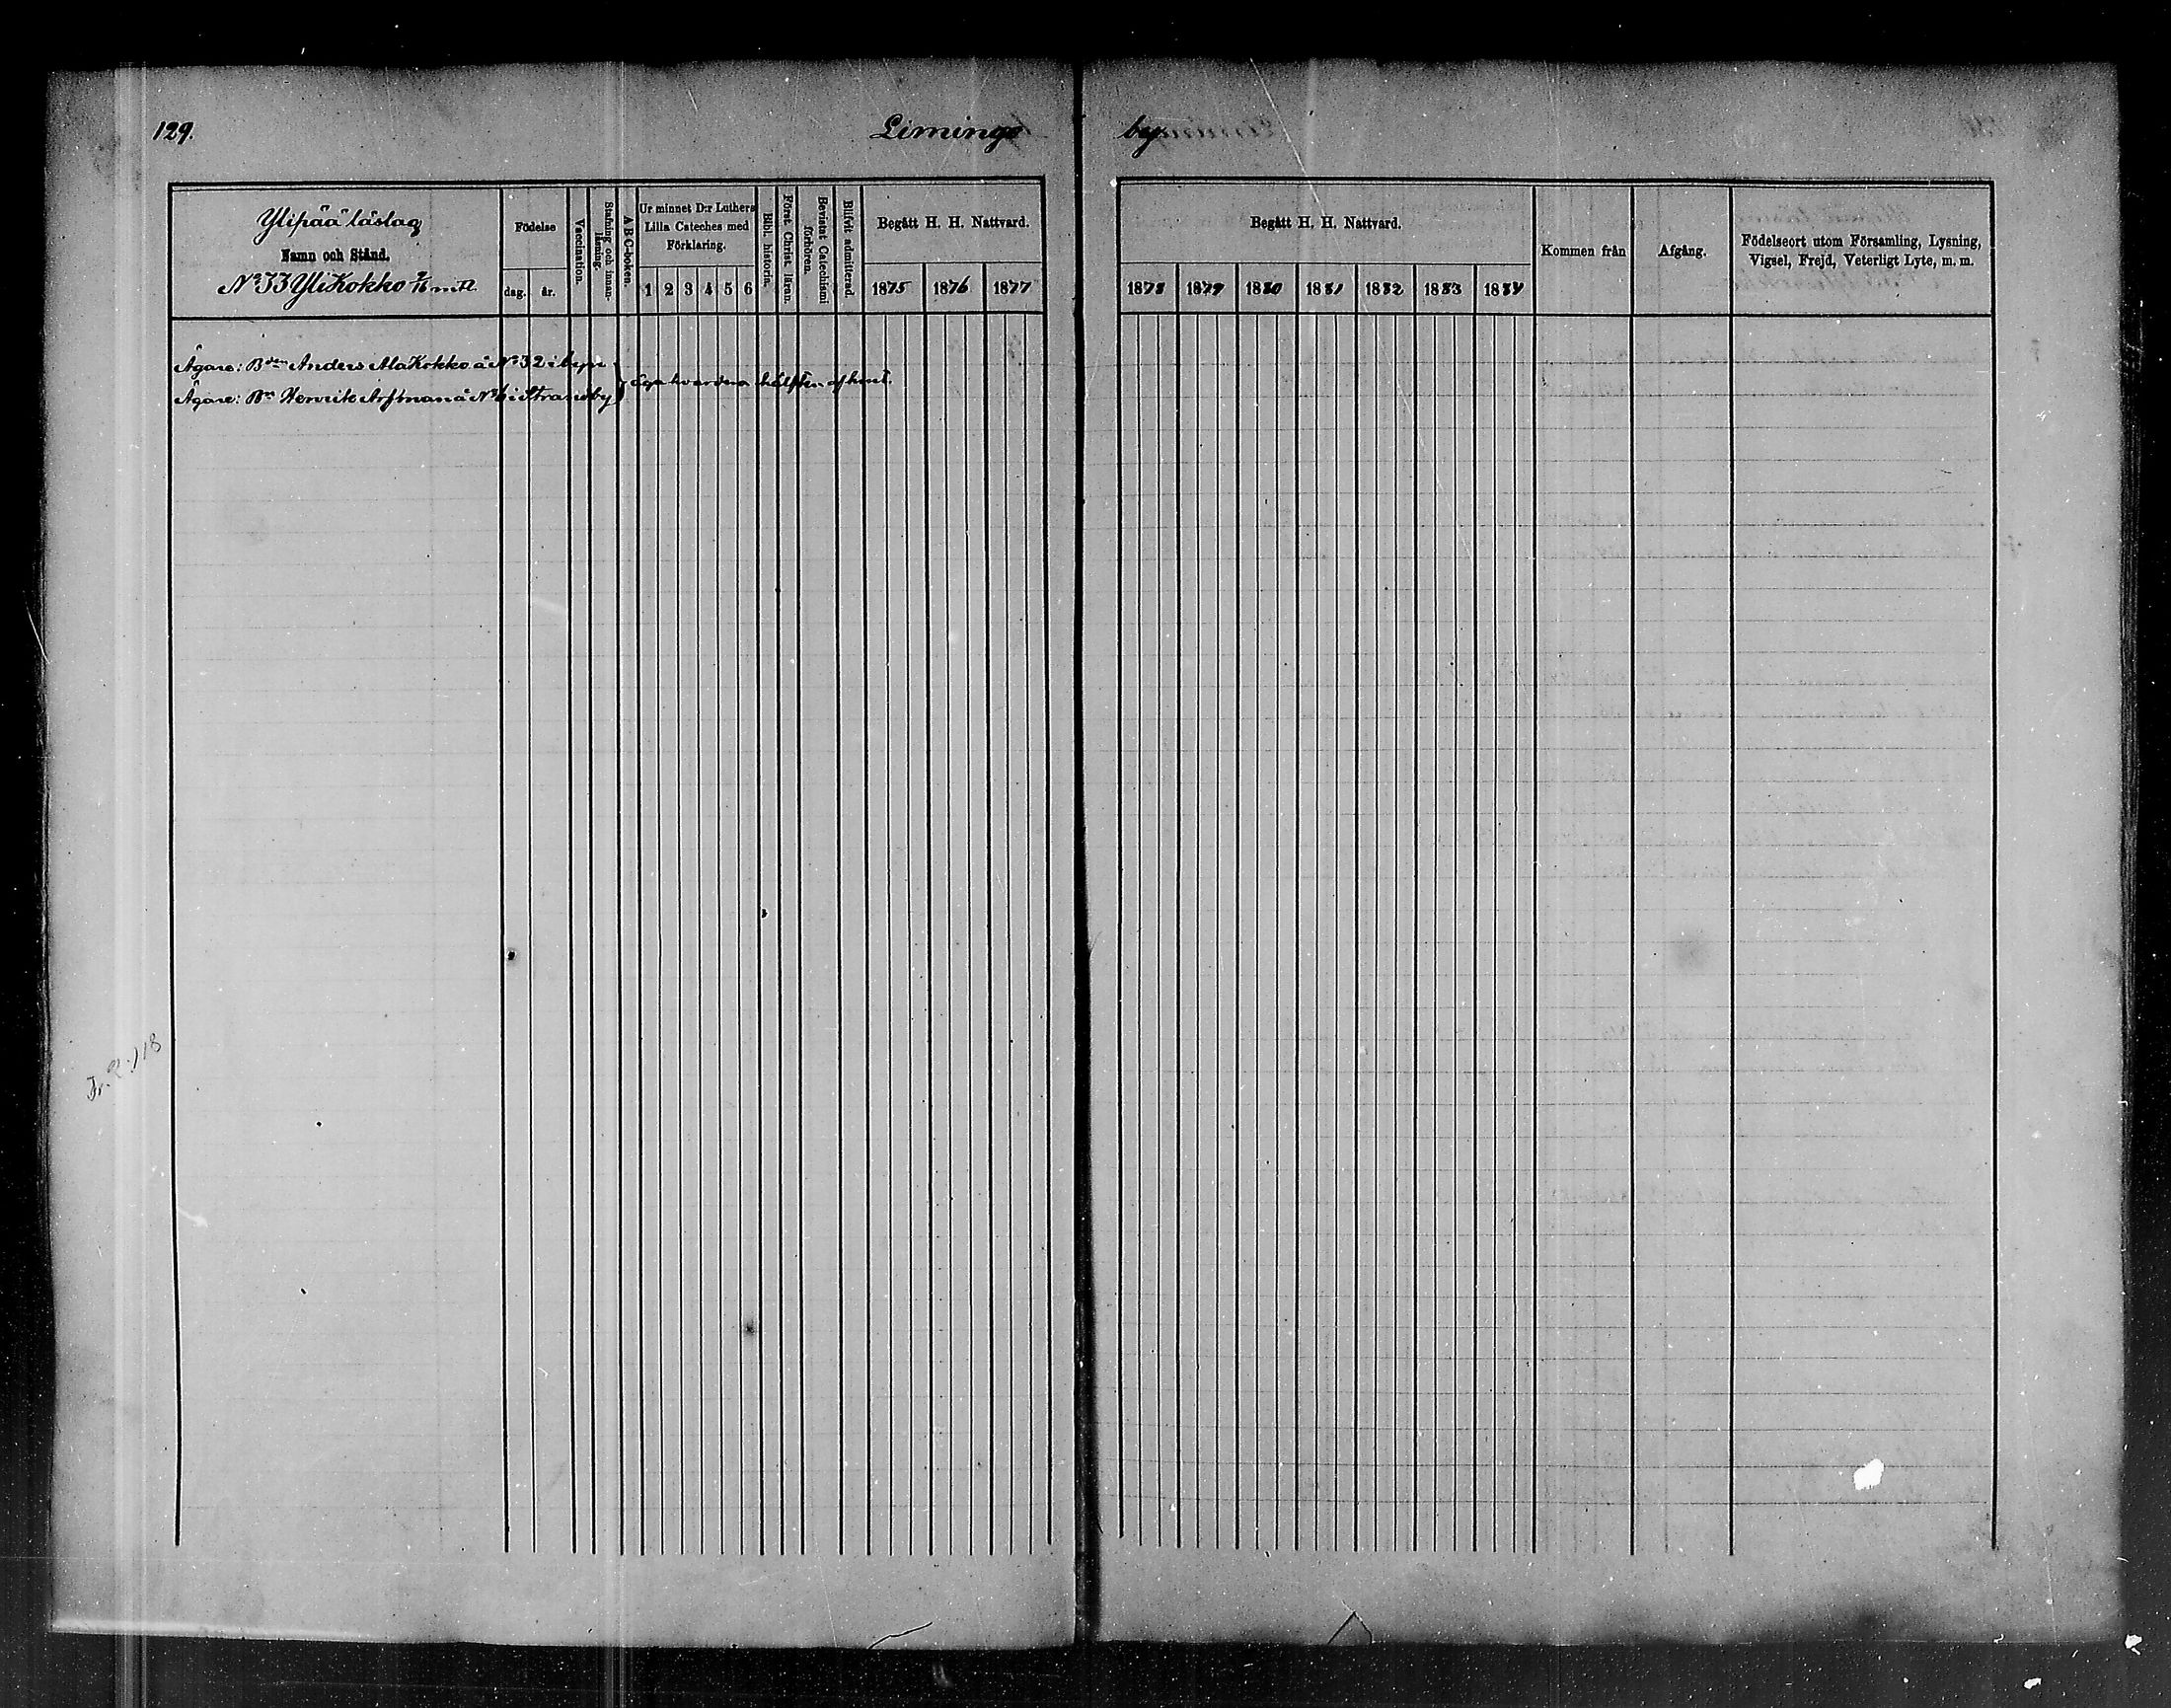 129.
Limingo by
Ylipää läslag
Namn och Stånd.
N:o 33 Yli Kokko mtl.
Födelse
dag.
år.
Vaccination.
Stafning och innanläsning.
A B C-boken.
Ur minnet D:r Luthers
Lilla Cateches med
Förklaring.
1 2 3 4 5 6
Bibl. historia.
Först. Christ. läran.
Bevistat Catechismi förhören.
Blifvit admitterad.
Begått H. H. Nattvard.
1875 1876 1877
Begått H. H. Nattvard.
1878 1879 1880 1881 1882 1883 1884
Kommen från
Afgång.
Födelseort utom Församling, Lysning,
Vigsel, Frejd, Veterligt Lyte, m. m.
Ägare: Bden Anders AlaKokko å N:o 32 i byn
Ägare: Bn Henrik Arfman å N:o 6 i Strandby
äga hvardera hälften af hmt.